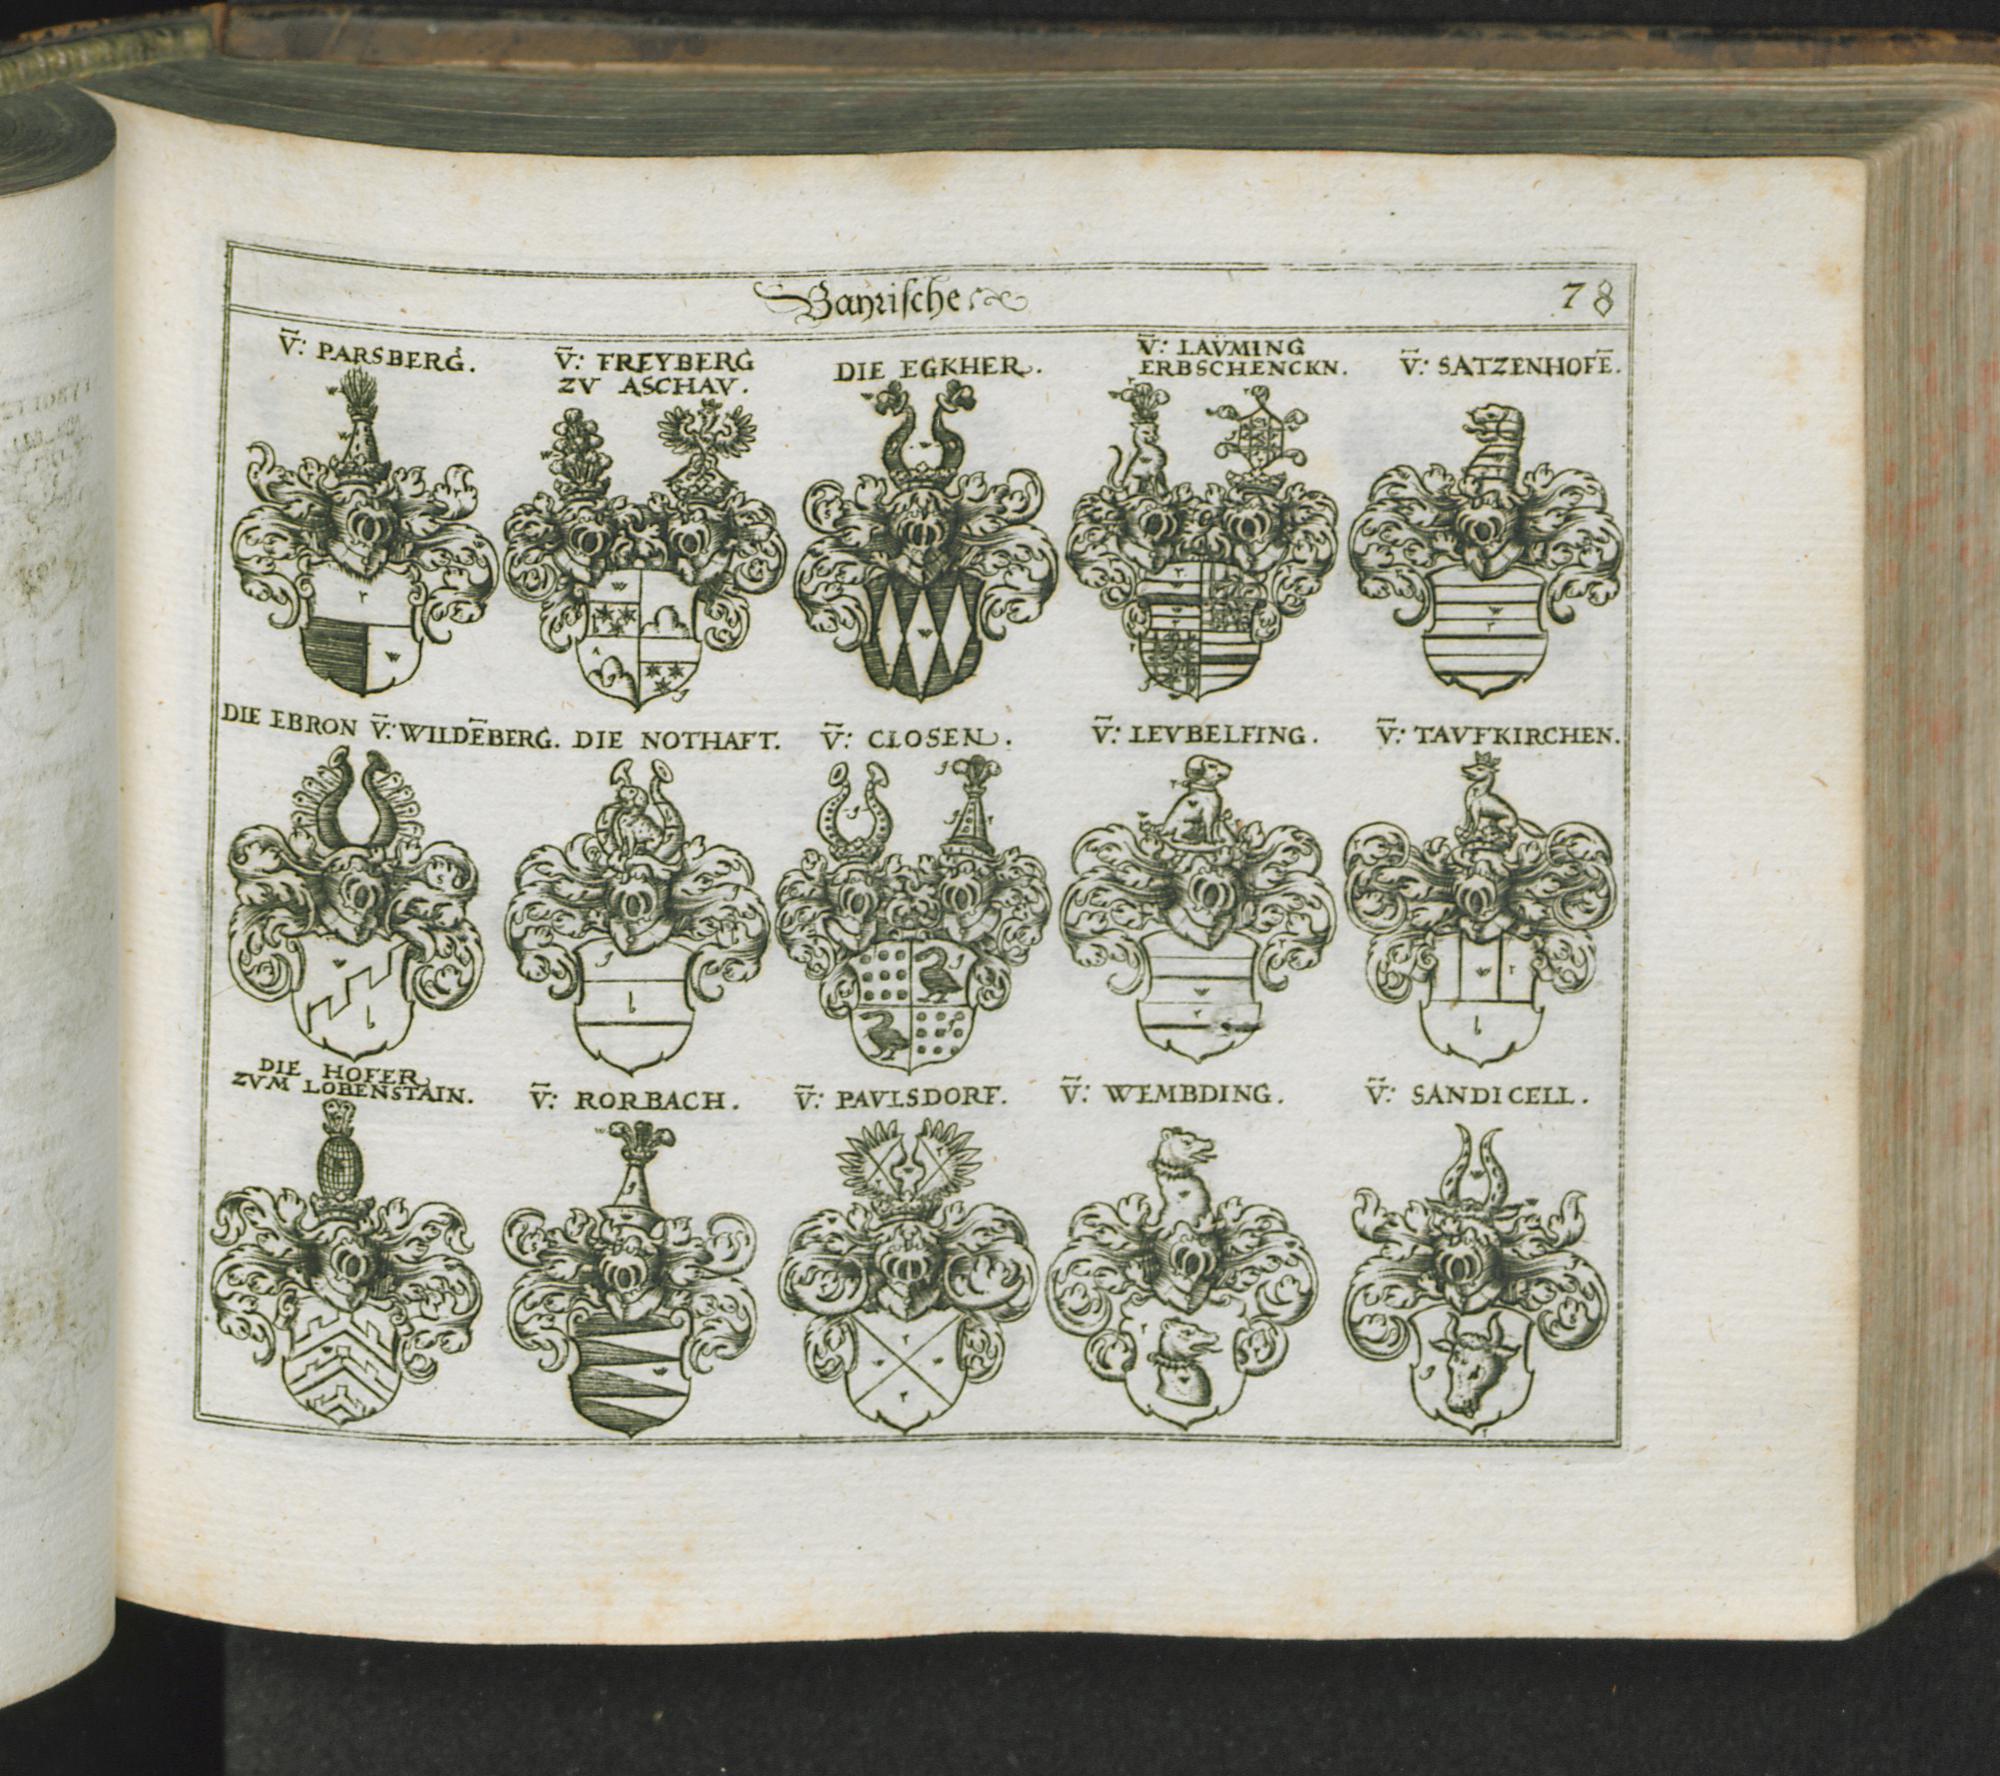 Bayrische
78
V̄: PARSBERG.
V̄: FREYBERG
ZV ASCHAV.
DIE EGKHER.
V̄: LAV̈MING
ERBSCHENCKN.
V̄: SATZENHOFĒ.
DIE EBRON V̄: WILDĒBERG.
DIE NOTHAFT.
V̄: CLOSEN.
V̄: LEVBELFING.
V̄: TAVFKIRCHEN.
DIE HOFER
ZVM LOBENSTAIN.
V̄: RORBACH.
V̄: PAVLSDORF.
V̄: WEMBDING.
V̄: SANDICELL.